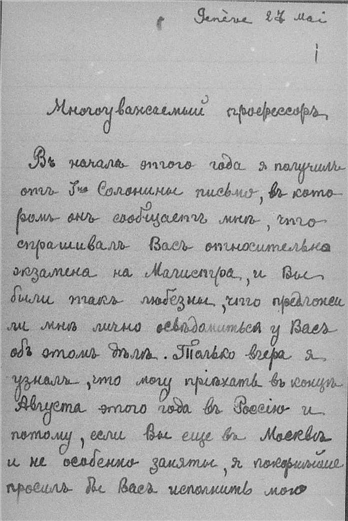 Genève 27 Mai
Многоуважаемый профессоръ,
Въ началѣ этого года я получилъ
отъ Гна Солонины письмо, въ кото
ромъ онъ сообщаетъ мнѣ, что
спрашивалъ Васъ относительно
экзамена на Магистра, и Вы
были такъ любезны, что предложи
ли мнѣ лично освѣдомиться у Васъ
объ этомъ дѣлѣ. Только вчера я
узналъ, что могу пріѣхать въ концѣ
Августа этого года въ Россію и
потому, если Вы еще въ Москвѣ
и не особенно заняты, я покорнѣйше
просилъ бы Васъ исполнить мою